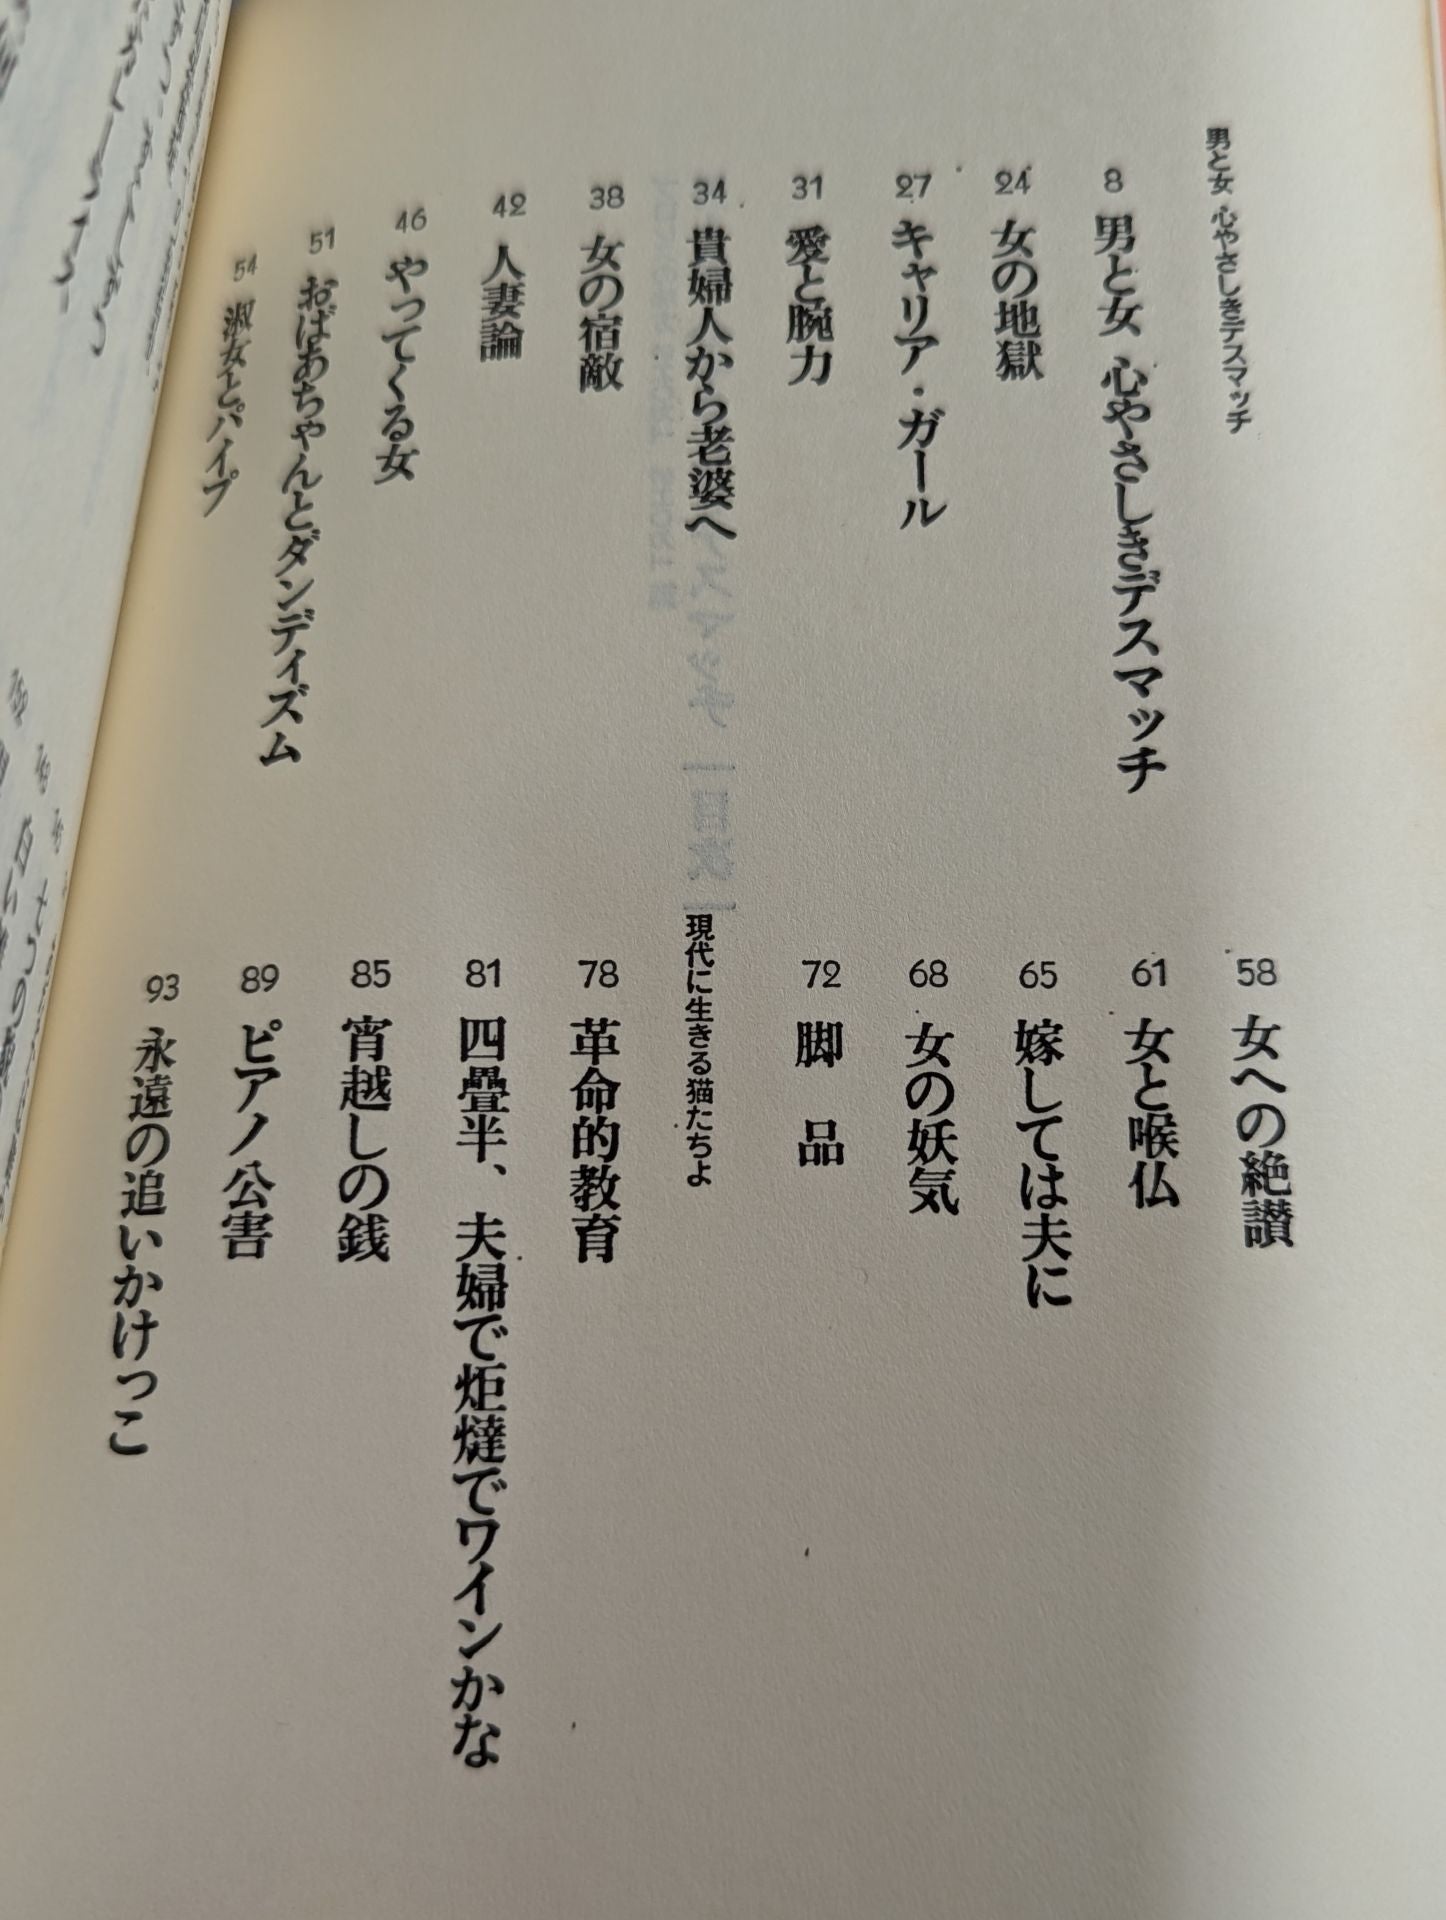 男と女 心やさしきデスマッチ
8 男と女 心やさしきデスマッチ
24 女の地獄
27 キャリア・ガール
31 愛と腕力
34 貴婦人から老婆へ
38 女の宿敵
42 人妻論
46 やってくる女
51 おばあちゃんとダンディズム
54 淑女とパイプ
58 女への絶讃
61 女と喉仏
65 嫁しては夫に
68 女の妖気
72 脚 品
現代に生きる猫たちよ
78 革命的教育
81 四疊半、夫婦で炬燵でワインかな
85 宵越しの銭
89 ピアノ公害
93 永遠の追いかけっこ